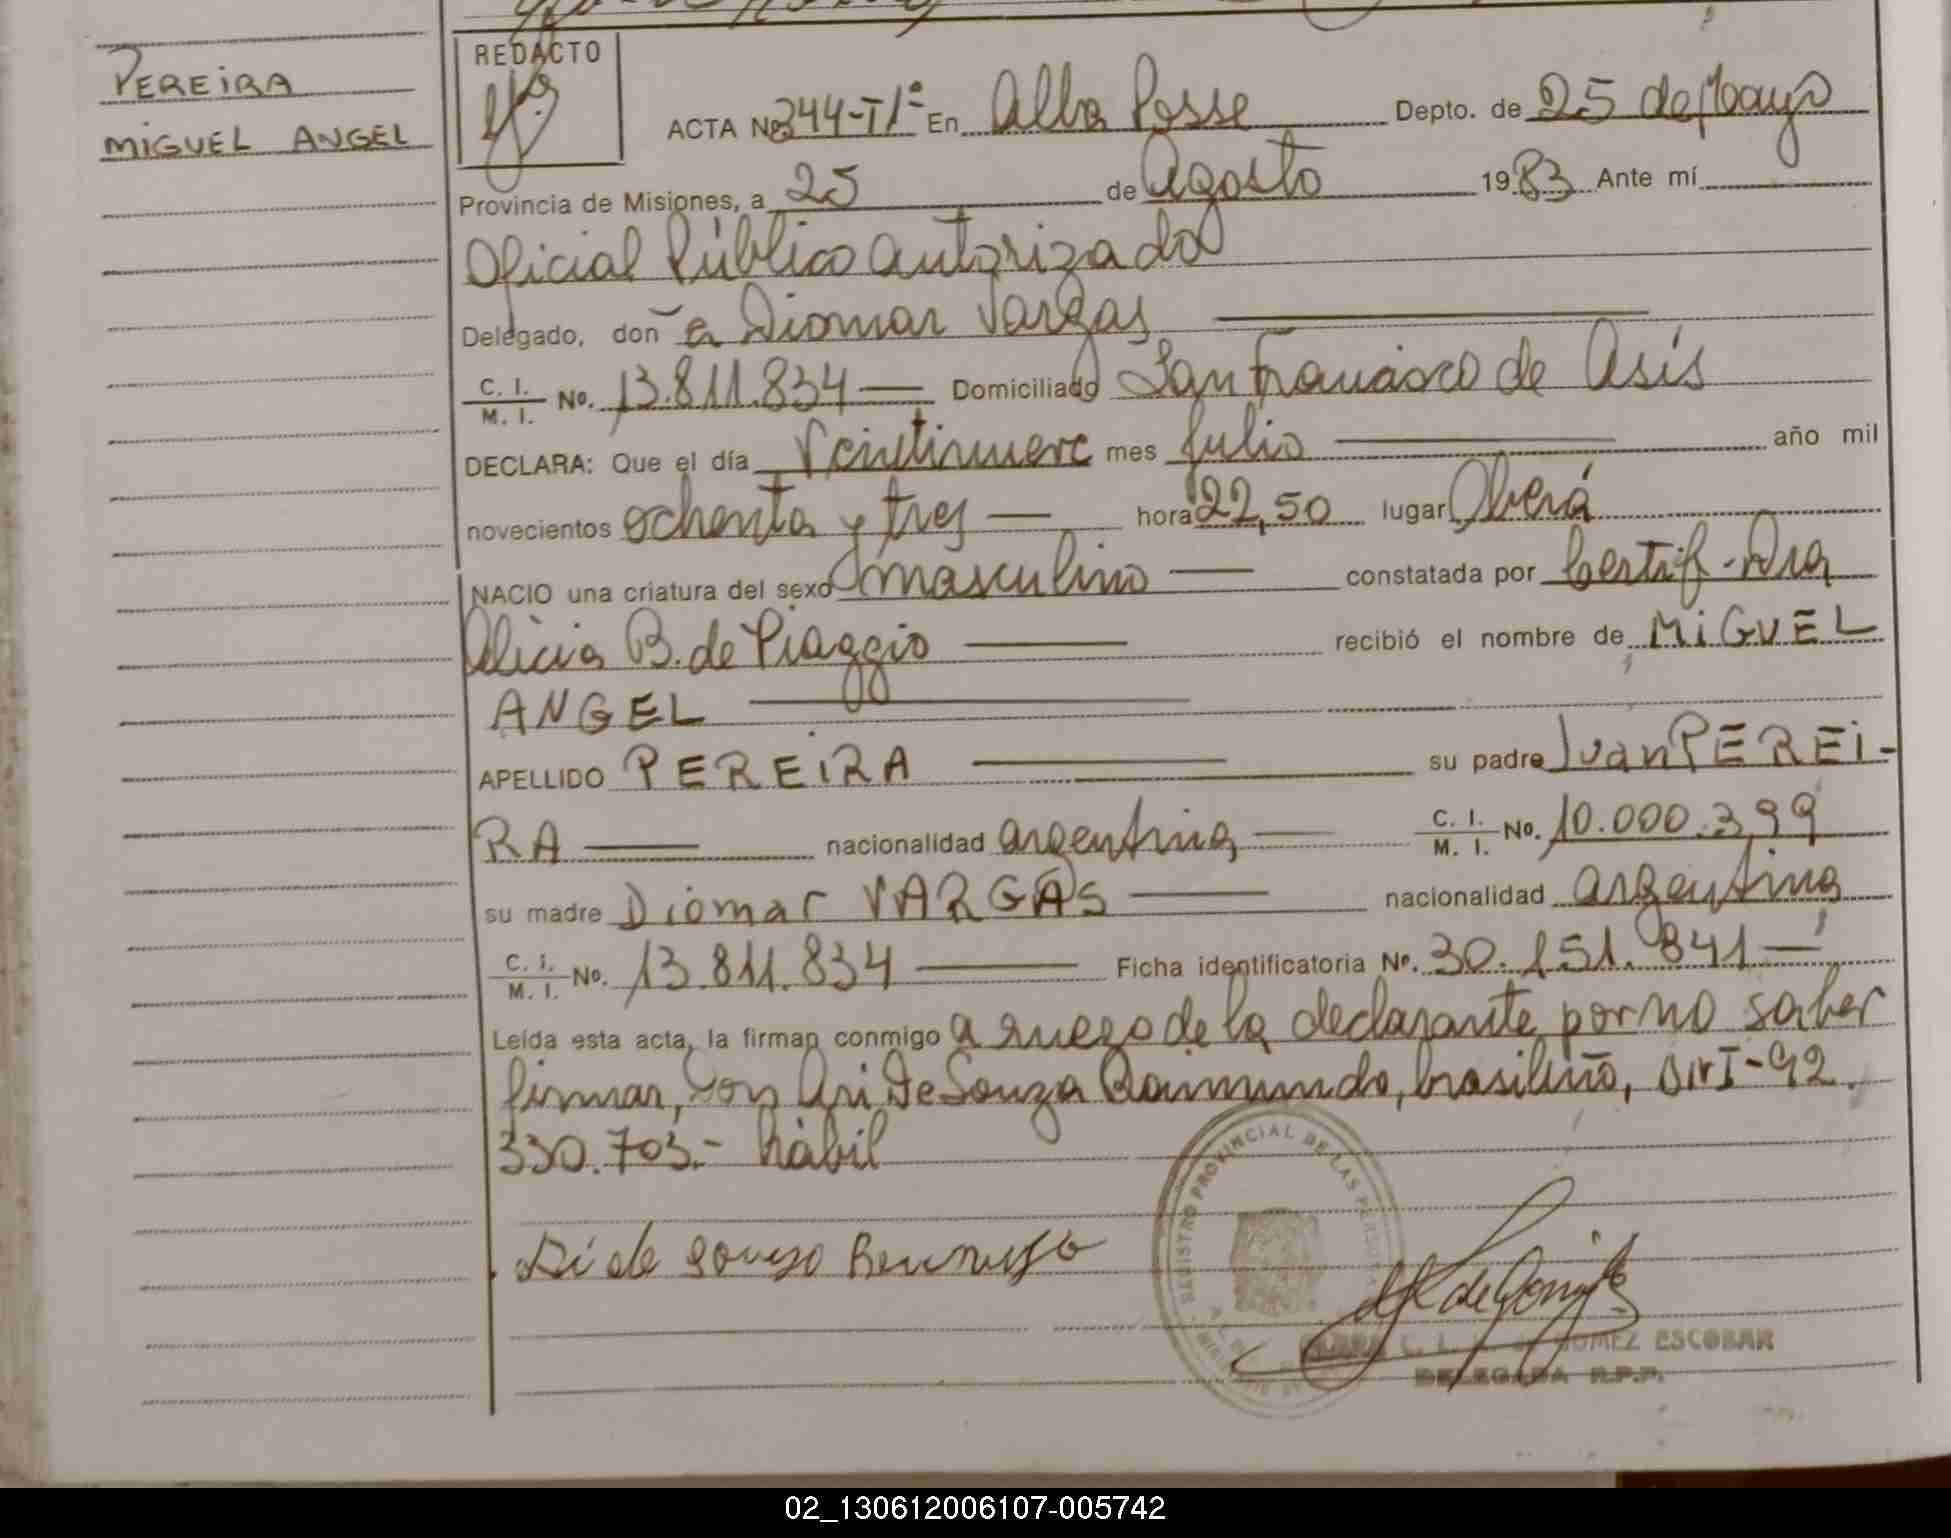 PEREIRA
MIGUEL ANGEL
REDACTO
ACTA Nº 344-Tº1º En Alba Posse Depto. de 25 de Mayo
Provincia de Misiones, a 25 de Agosto 1983 Ante mí
Oficial Público autorizado
Delegado, don ~ a Diomar Vargas
C. I. / M. I. No. 13.811.834 Domiciliado San Francisco de Asís
DECLARA: Que el día Veintinueve mes Julio año mil
novecientos ochenta y tres hora 22,50 lugar Oberá
NACIO una criatura del sexo masculino constatada por Certif. Dra
Alicia B. de Piaggio recibió el nombre de MIGUEL
ANGEL
APELLIDO PEREIRA su padre Juan PEREI-
RA nacionalidad argentina C. I. / M. I. No. 10.000.399
su madre Diomar VARGAS nacionalidad argentina
C. I. / M. I. No. 13.811.834 Ficha identificatoria Nº. 30.151.841
Leída esta acta, la firman conmigo a ruego de la declarante por no saber
firmar, Don Ari De Souza Raimundo, brasileño, DNI-92.
330.703.- hábil
REGISTRO PROVINCIAL DE LAS PERSONAS
GOMEZ ESCOBAR
DELEGADA R.P.P.
02_130612006107-005742